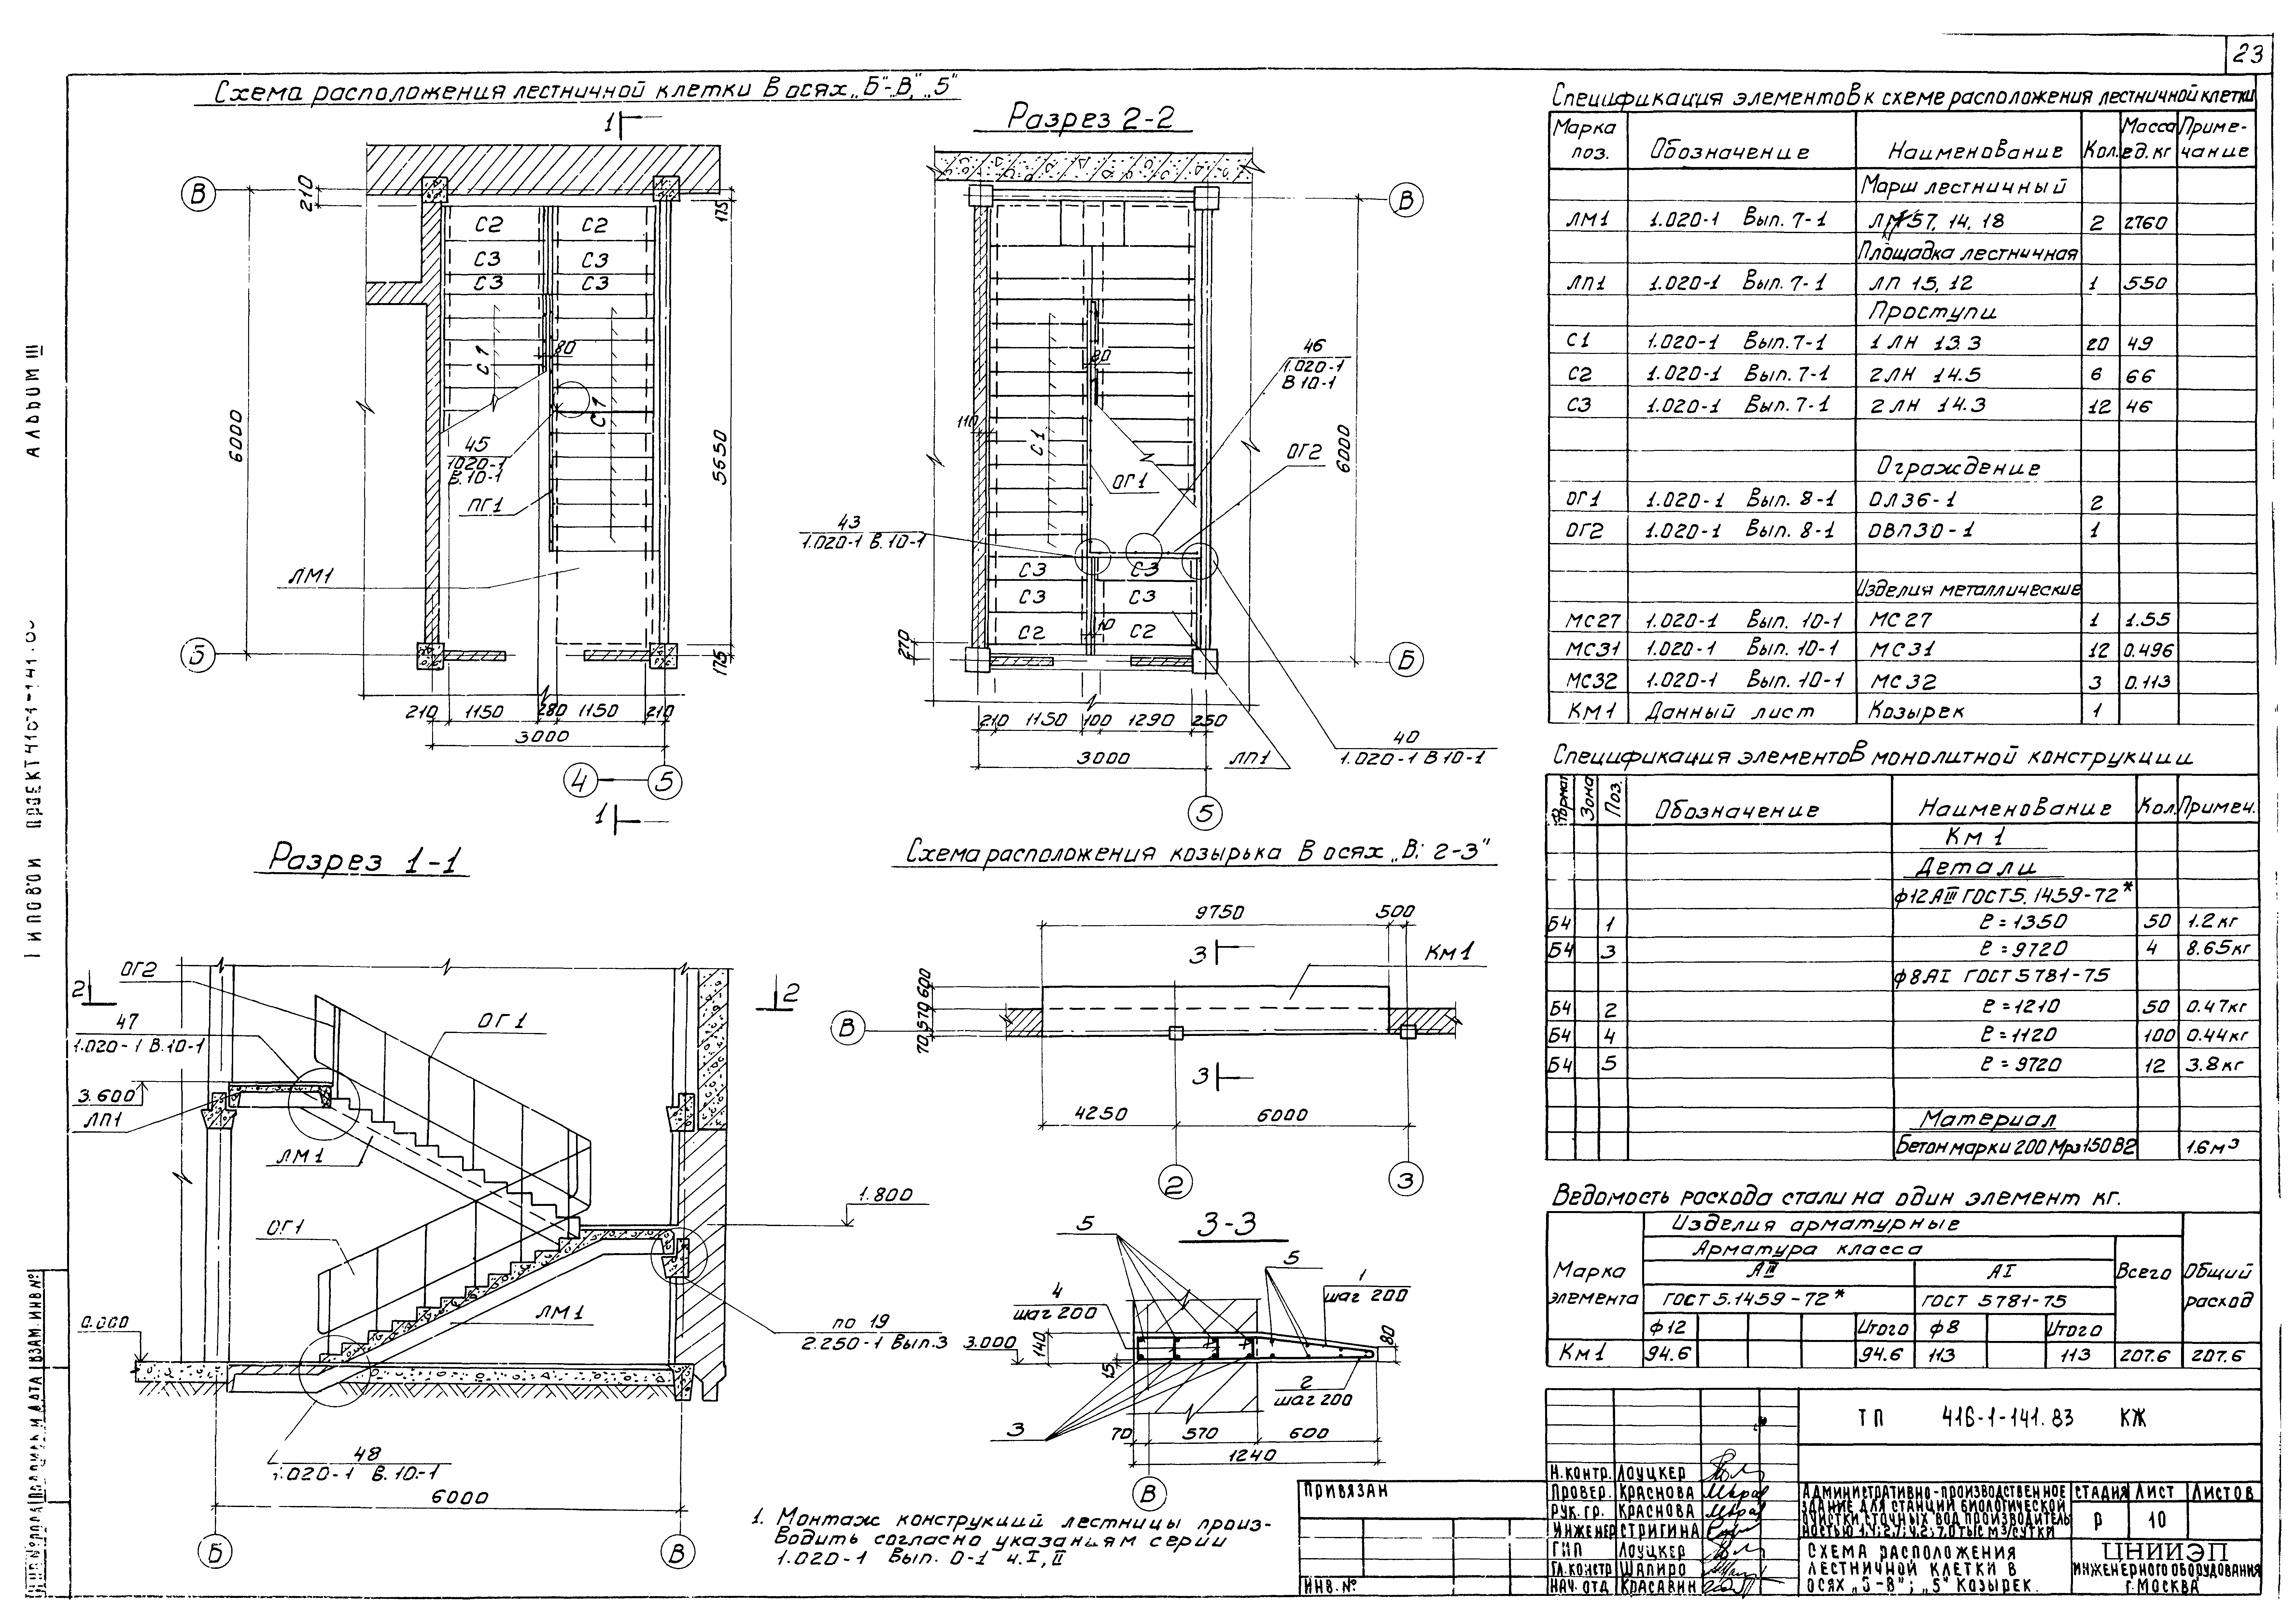 23
Схема расположения лестничной клетки в осях „Б"-„В", „5"
1
В
210
175
С2 С2
С3 С3
С3 С3
С1
80
С1
6000
5650
45
1020-1
В.10-1
ПГ1
ЛМ1
Б
175
210 1150 280 1150 210
3000
4 5
1
Разрез 2-2
В
46
1.020-1
В 10-1
80
110
С1
ОГ2
6000
ОГ1
43
1.020-1 В.10-1
С3 С3
С3 С3
С2 С2
10
210
Б
210 1150 100 1290 250
3000
ЛП1
40
1.020-1 В 10-1
5
Разрез 1-1
2
2
ОГ2
47
1.020-1 В.10-1
ОГ1
3.600
ЛП1
ЛМ1
1.800
ОГ1
ЛМ1
0.000
по 19
2.250-1 Вып.3
48
1.020-1 В.10-1
6000
Б В
Схема расположения козырька в осях „В; 2-3"
9750 500
3
КМ1
600
570
70
В
3
4250 6000
2 3
3-3
5
5
4
шаг 200
1
шаг 200
3.000
140
15
80
2
шаг 200
3
70 570 600
1240
В
1. Монтаж конструкций лестницы произ-
водить согласно указаниям серии
1.020-1 Вып. 0-1 ч.I,II
Спецификация элементов к схеме расположения лестничной клетки
Марка поз. Обозначение Наименование Кол. Масса ед. кг Приме-чание
Марш лестничный
ЛМ1 1.020-1 Вып. 7-1 ЛМ57, 14, 18 2 2760
Площадка лестничная
ЛП1 1.020-1 Вып. 7-1 ЛП 15, 12 1 550
Проступи
С1 1.020-1 Вып. 7-1 1 ЛН 13.3 20 49
С2 1.020-1 Вып. 7-1 2 ЛН 14.5 6 66
С3 1.020-1 Вып. 7-1 2 ЛН 14.3 12 46
Ограждение
ОГ1 1.020-1 Вып. 8-1 ОЛ36-1 2
ОГ2 1.020-1 Вып. 8-1 ОВП30-1 1
Изделия металлические
МС27 1.020-1 Вып. 10-1 МС27 1 1.55
МС31 1.020-1 Вып. 10-1 МС31 12 0.496
МС32 1.020-1 Вып. 10-1 МС32 3 0.113
КМ1 Данный лист Козырек 1
Спецификация элементов монолитной конструкции
Формат Зона Поз. Обозначение Наименование Кол. Примеч.
Км 1
Детали
ф12АIII ГОСТ 5.1459-72*
Б4 1 ℓ=1350 50 1.2кг
Б4 3 ℓ=9720 4 8.65кг
ф8АI ГОСТ 5781-75
Б4 2 ℓ=1210 50 0.47кг
Б4 4 ℓ=1120 100 0.44кг
Б4 5 ℓ=9720 12 3.8кг
Материал
Бетон марки 200 Мрз150 В2 1.6м³
Ведомость расхода стали на один элемент кг.
Марка элемента Изделия арматурные Общий расход
Арматура класса Всего
АIII АI
ГОСТ 5.1459-72* ГОСТ 5781-75
ф12 Итого ф8 Итого
Км1 94.6 94.6 113 113 207.6 207.6
ТП 416-1-141.83 КЖ
Н.контр. Лоуцкер
Провер. Краснова
Рук. гр. Краснова
Инженер Стригина
ГИП Лоуцкер
Гл.констр Шапиро
Нач. отд Красавин
Административно-производственное
здание для станций биологической
очистки сточных вод производитель
ностью 1,4; 2,7; 4,2; 7,0 тыс м3/сутки
Стадия Лист Листов
Р 10
Схема расположения
лестничной клетки в
осях „Б-В"; „5" Козырек.
ЦНИИЭП
инженерного оборудования
г. Москва
Привязан
Инв. №
Альбом III
Типовой проект 416-1-141.83
Взам. инв. №